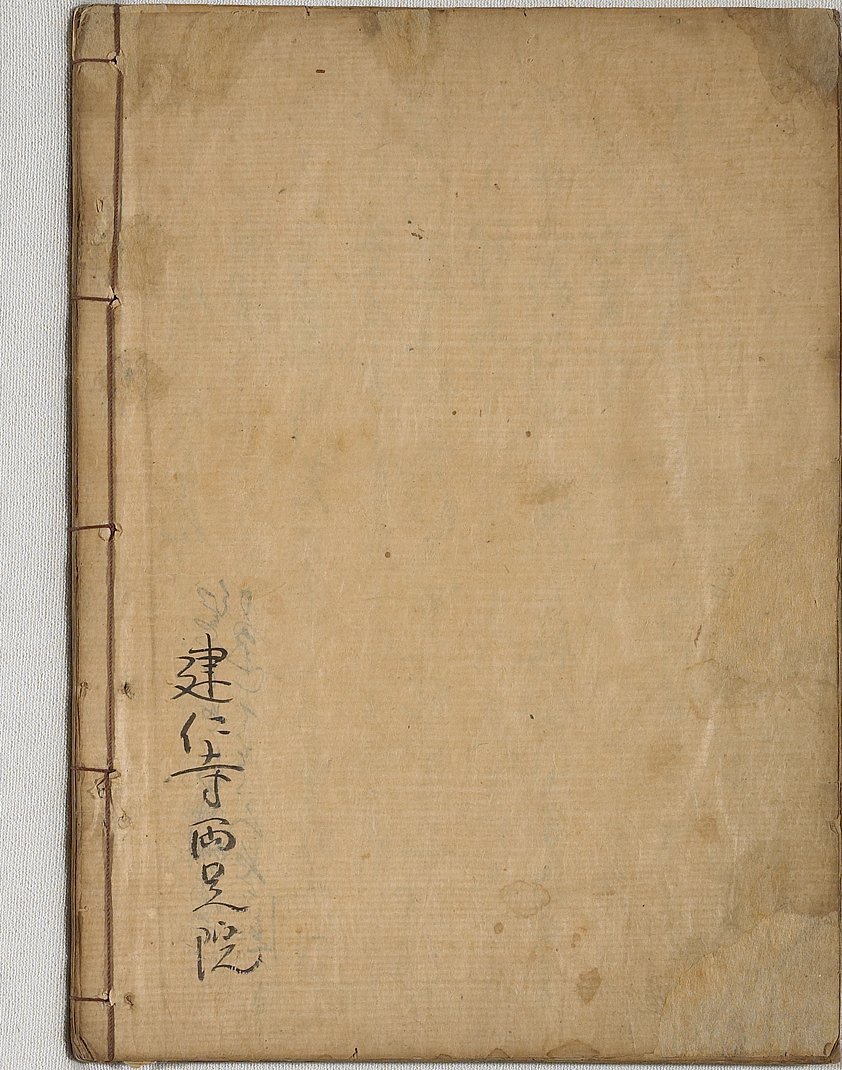 建仁寺両足院